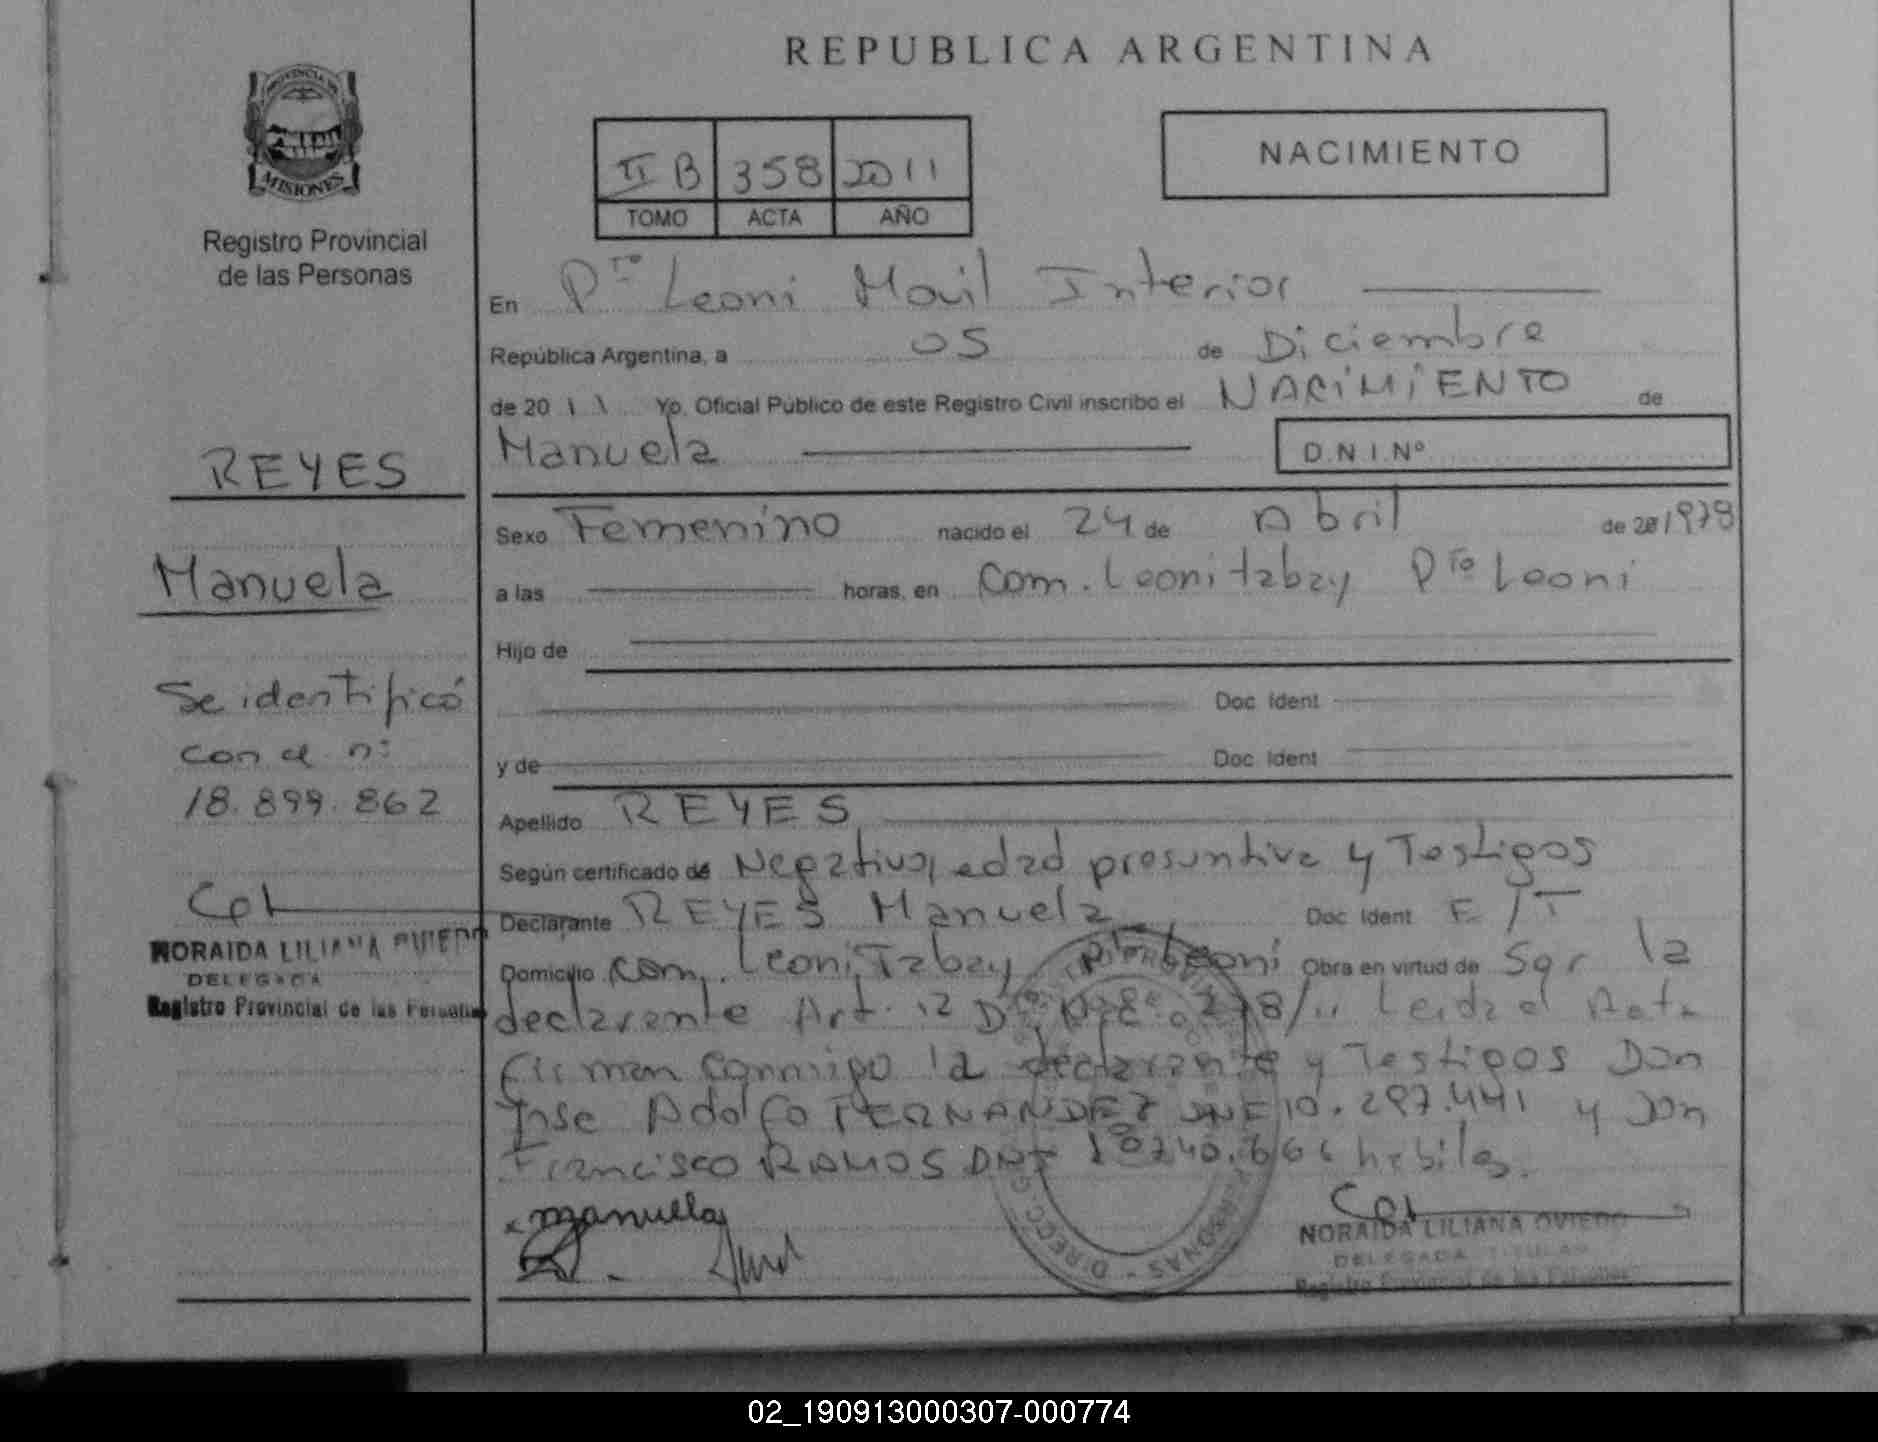 REPUBLICA ARGENTINA
PROVINCIA DE
MISIONES
Registro Provincial
de las Personas
II B 358 2011
TOMO ACTA AÑO
NACIMIENTO
En Pto Leoni Movil Interior
República Argentina, a 05 de Diciembre
de 2011 Yo, Oficial Público de este Registro Civil inscribo el NACIMIENTO de
Manuela D.N.I.Nº
REYES
Manuela
Se identificó
con el nº
18.899.862
NORAIDA LILIANA OVIEDO
DELEGADA
Registro Provincial de las Personas
Sexo Femenino nacido el 24 de Abril de 20 1978
a las horas, en Com. Leoni Tabay Pto Leoni
Hijo de
Doc. Ident
y de Doc. Ident
Apellido REYES
Según certificado de Negativo, edad presuntiva y Testigos
Declarante REYES Manuela Doc. Ident E/T
Domicilio Com. Leoni Tabay Pto Leoni Obra en virtud de Ser la
declarante Art. 12 278/11 Leida el Acta
firman conmigo la declarante y Testigos Don
Jose Adolfo FERNANDEZ DNI 10.297.441 y Don
Francisco RAMOS DNI habiles.
manuella
NORAIDA LILIANA OVIEDO
DELEGADA TITULAR
Registro Provincial de las Personas
02_190913000307-000774